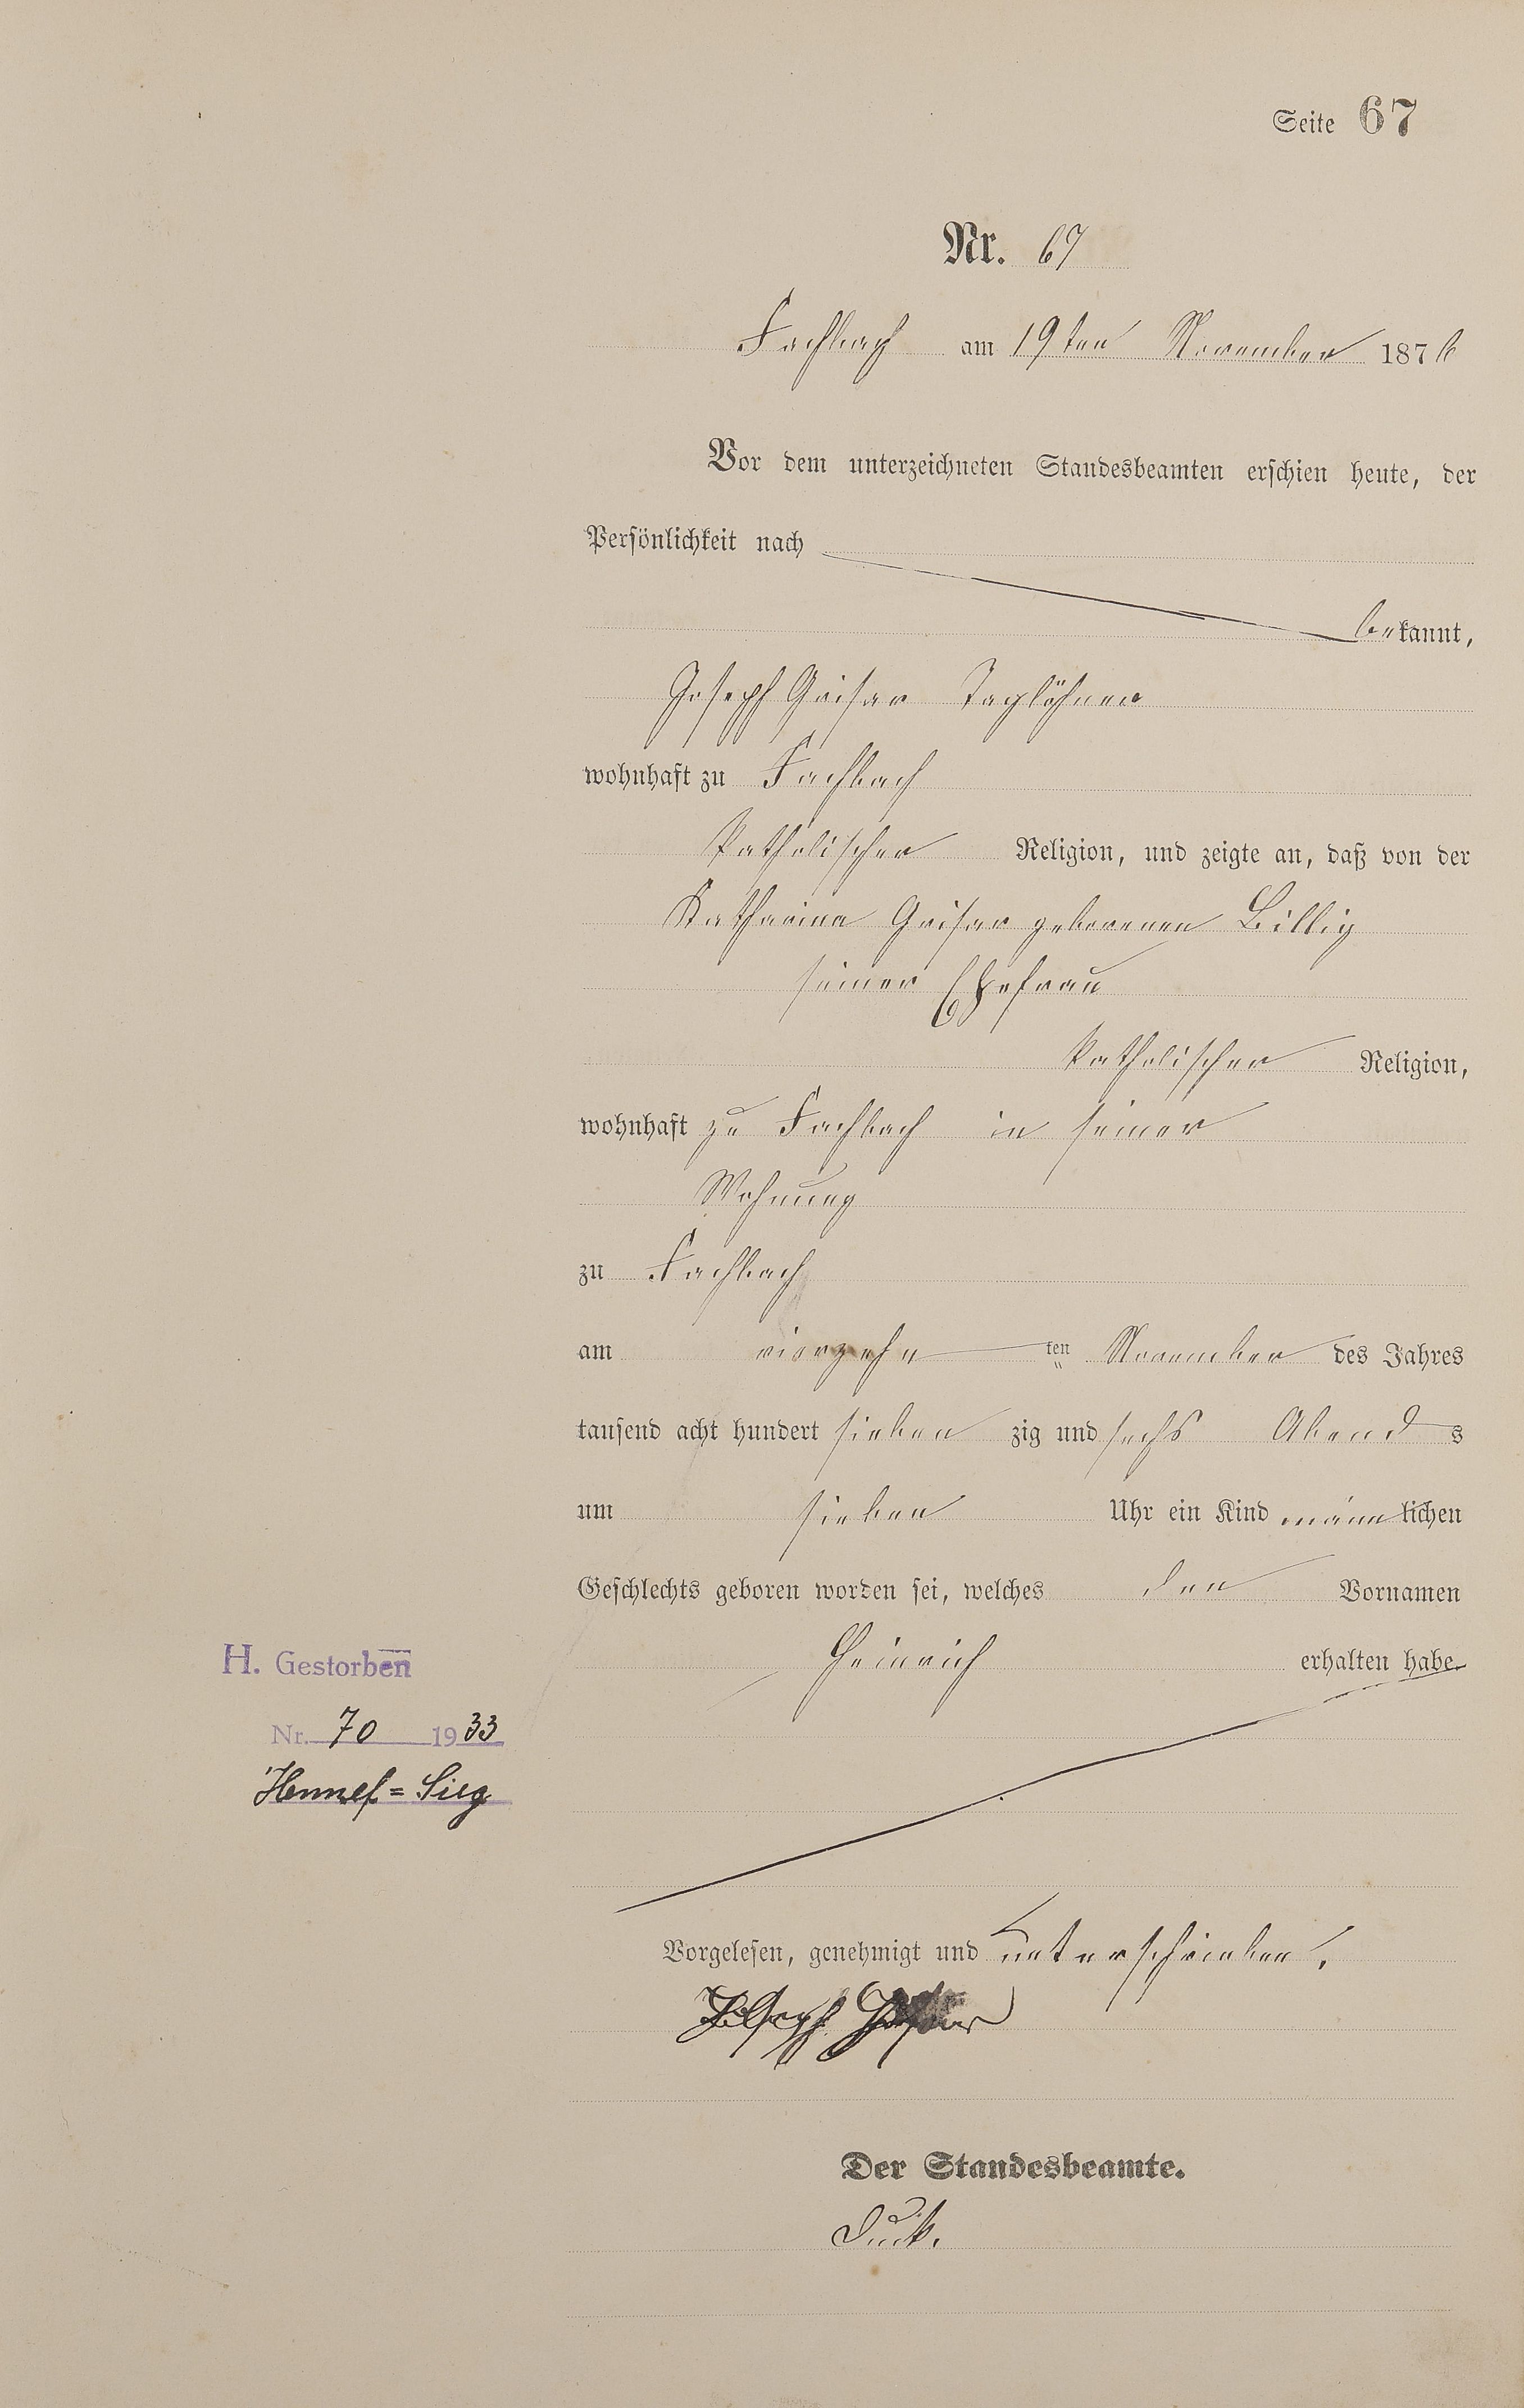 Seite 67
Nr. 67
Fachbach am 19ten November 1876
Vor dem unterzeichneten Standesbeamten erschien heute, der
Persönlichkeit nach
bekannt,
Joseph Grisar Taglöhner
wohnhaft zu Fachbach
Katholischer Religion, und zeigte an, daß von der
Katharina Grisar geborenen Billig
seiner Ehefrau
katholischer Religion,
wohnhaft zu Fachbach in seiner
Wohnung
zu Fachbach
am vierzehn ten November des Jahres
tausend acht hundert sieben zig und sechs Abend s
um sieben Uhr ein Kind männlichen
Geschlechts geboren worden sei, welches den Vornamen
Heinrich erhalten habe
H. Gestorben
Nr. 70 1933
Hennef=Sieg
Vorgelesen, genehmigt und unterschrieben.
Joseph
Der Standesbeamte.